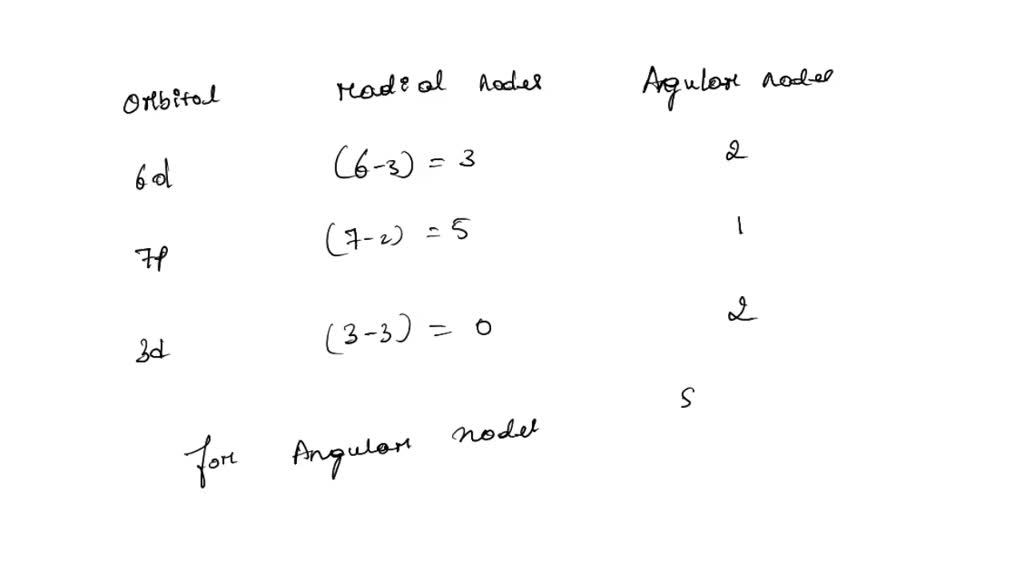 Orbital Radial nodes Agular nodes
6d (6-3) = 3 2
7p (7-2) = 5 1
3d (3-3) = 0 2
for Angular nodes s